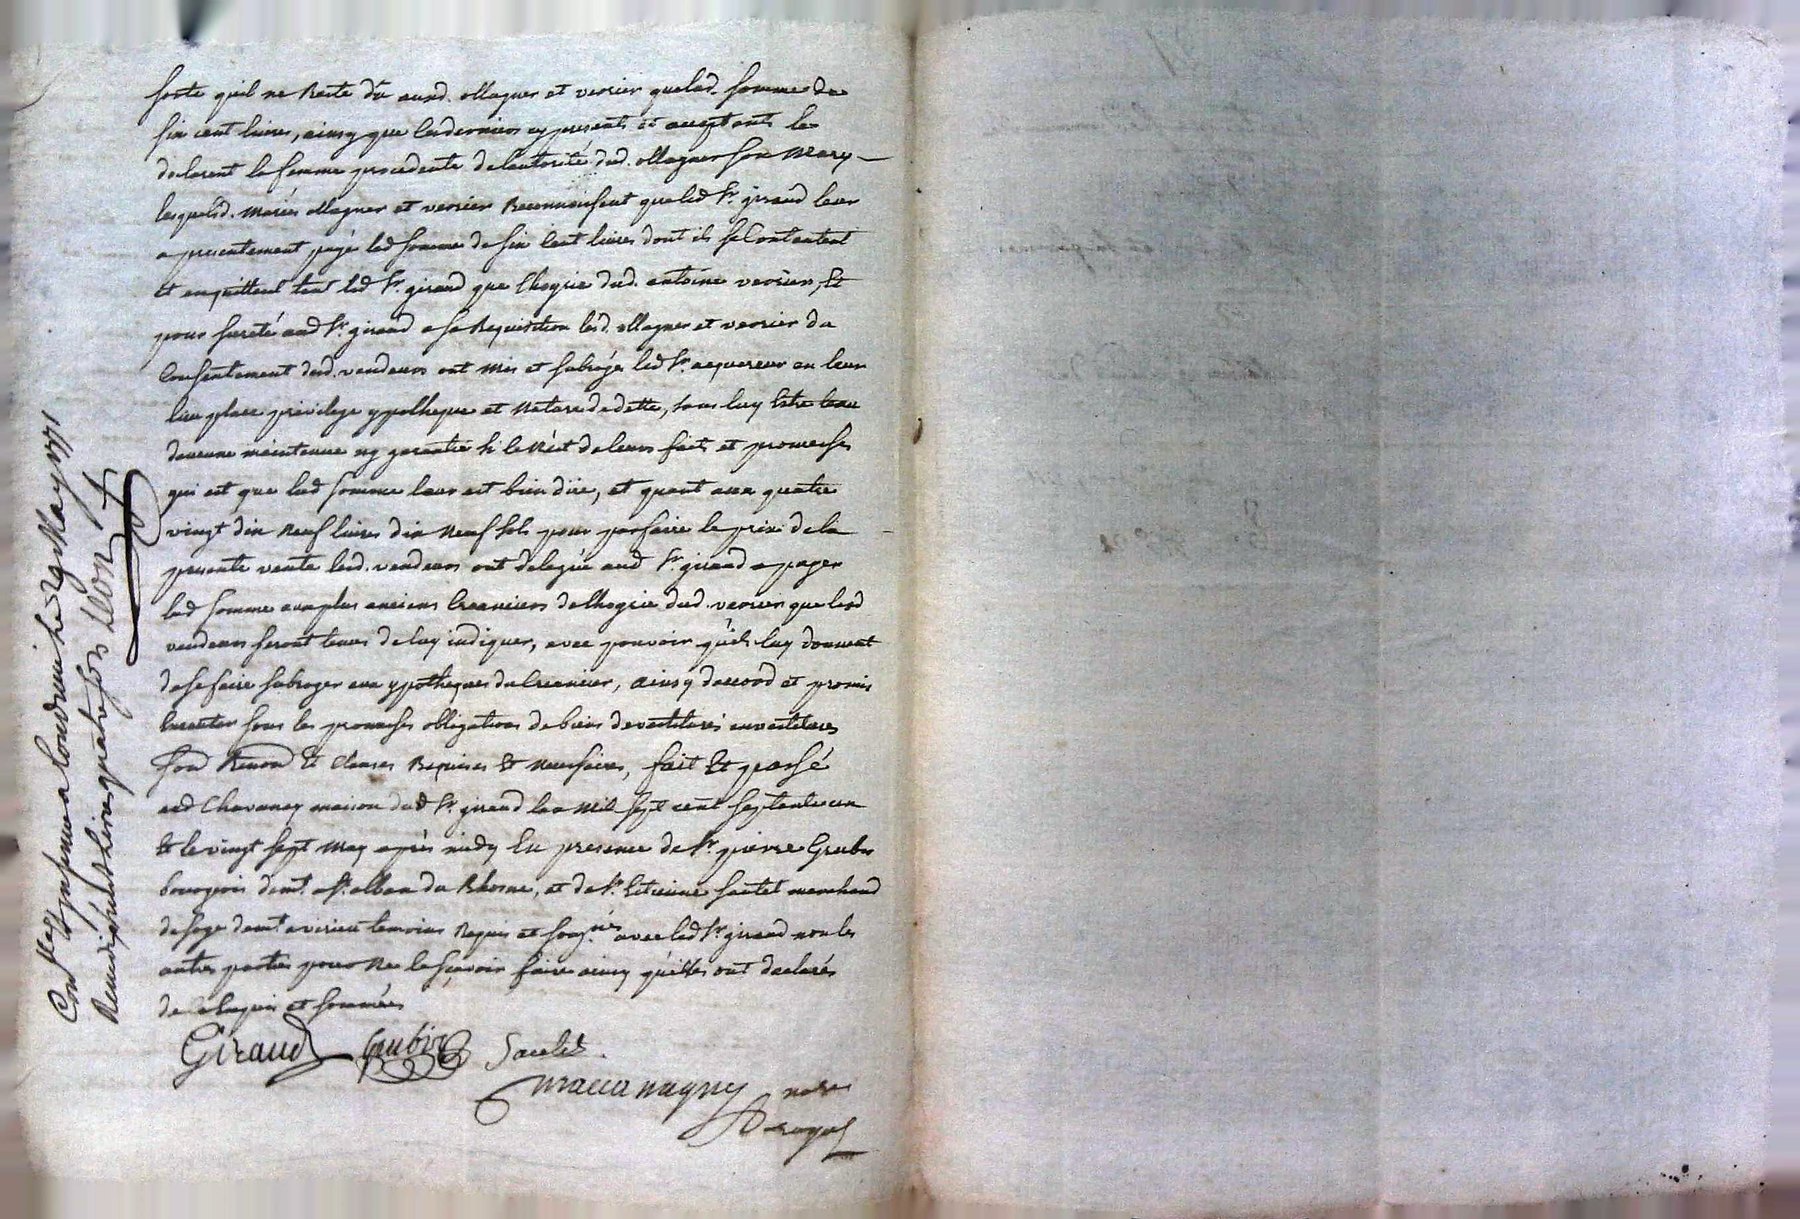 sorte quil ne Reste dû aund. ollagner et verrier quelad. somme de
six cent livres, ainsy que lesderniers cy presents et acceptants le
declarent la femme procedente de lautorité dud. ollagner son Mary
lesquelsd. Mariés ollagner et verrier Reconnoissent queled Sr. giraud leur
a presentement payé lad somme de six Cent livres dont ils se Contentent
et enquittent tant led Sr. giraud que lhoyrie dud. antoine verrier, Et
pour sureté aud Sr. giraud a sa Requisition lesd. ollagner et verrier du
Consentement desd. vendeurs ont Mis et subrogés led Sr. acquereur en leur
lieu place privilege ypotheque et Nature de dette, sans luy Estre
daucune maintenue ny garantie si ce Nest de leurs faits et promesses
qui est que lad somme leur est bien düe, et quant aux quatre
vingt dix Neuf livres dix Neuf sols pour parfaire le prix de la
presente vente lesd. vendeurs ont delegué aud Sr. giraud a payer
lad somme aux plus anciens Creanciers de lhoyrie dud. verrier que lesd
vendeurs seront tenus de luy indiquer, avec pouvoir quils luy donnent
de se faire subroger aux ypotheques du Creancier, ainsy daccord et promis
sous les promesses obligations de biens devestitures investitures
Renon Et Clauses Requises Et Necessaires, fait Et passé
aud Chavanay maison dud Sr. giraud lan Mil sept cent septante un
Et le vingt sept May après midy En presence de Sr. pierre Grubis
bourgeois demt. a St. alban du Rhosne, et de Sr. Etienne sautet marchand
demt. a verieu temoins Requis et soussignés avec led Sr. giraud non les
autres parties pour Ne le sçavoir faire ainsy quelles ont declarés
de ce Enquis et sommées
Giraud Sautet
Maccanagny
Conlle a Condrieu le 29 May 1771
Reçu